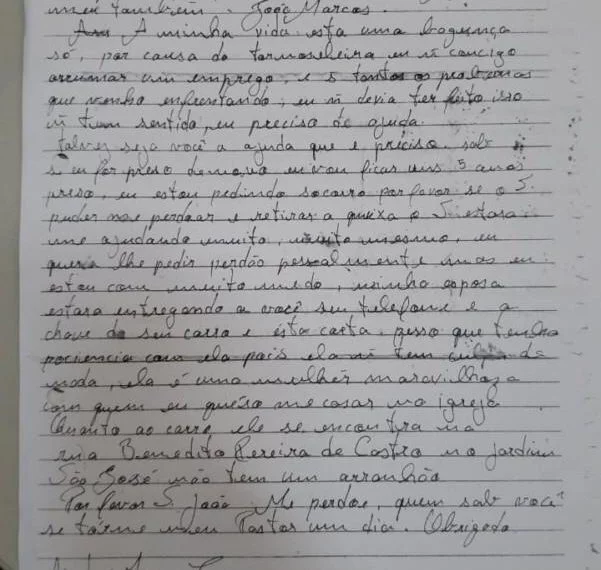 meu também. João Marcos.
A minha vida esta uma bagunça
só, por causa da tornoseleira eu ñ concigo
arrumar um emprego, e s tantos os problemas
que venho enfrentando, eu ñ devia ter feito isso
ñ tem sentido, eu preciso de ajuda.
Talvez seja você a ajuda que e preciso. sab
s eu for preso denovo eu vou ficar uns 5 anos
preso, eu estou pedindo socorro por favor se o S.
puder me perdoar e retirar a queixa o S. estara
me ajudando muito, muito mesmo, eu
queria lhe pedir perdão pessoalmente mas eu
estou com muito medo, minha esposa
estara entregando a você seu telefone e a
chave do seu carro e esta carta. pesso que tenha
pociencia com ela pois ela ñ tem culpa de
nada, ela é uma mulher maravilhosa
com quem eu queiro me casar na igreja
Quanto ao carro ele se encontra na
rua Benedito Pereira de Castro no jardim
São José não tem um arranhão
Por favor S. João Me perdoe, quem sab você
se torne meu Pastor um dia. Obrigado